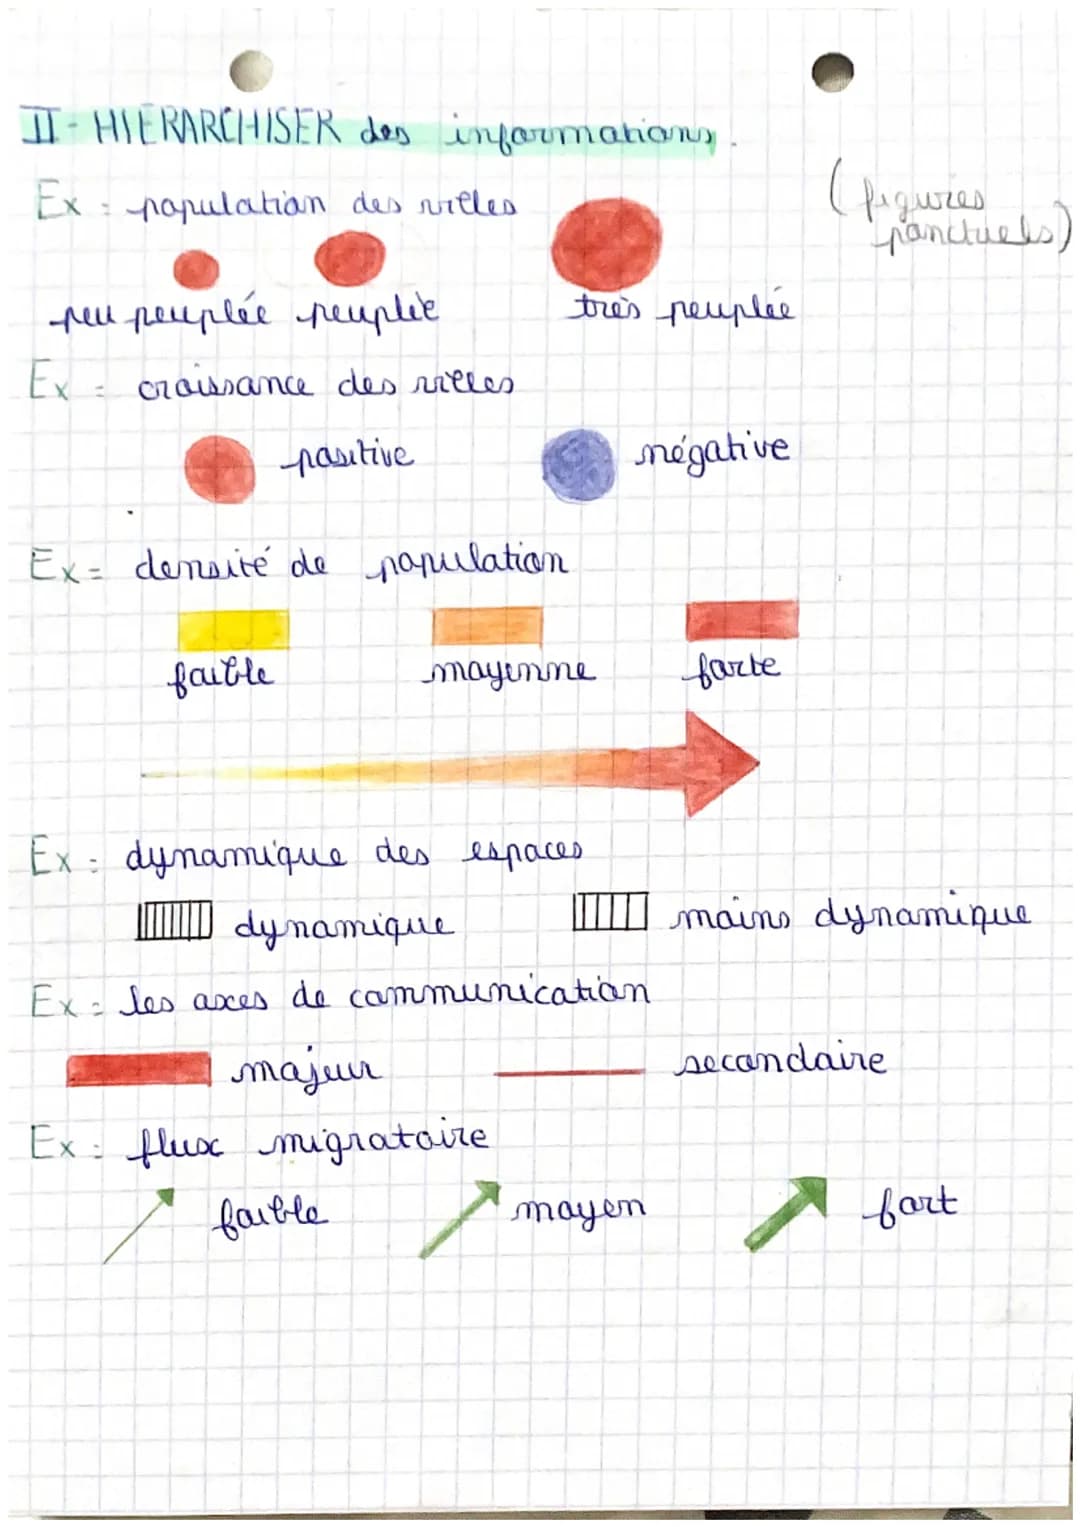 II - HIERARCHISER des informations.
Ex : population des villes
(figures
ponctuels)
peu peuplée peuplée très peuplée
Ex : croissance des villes
positive négative
Ex : densité de population
faible moyenne forte
Ex : dynamique des espaces
dynamique moins dynamique
Ex : les axes de communication
majeur secondaire
Ex : flux migratoire
faible moyen fort